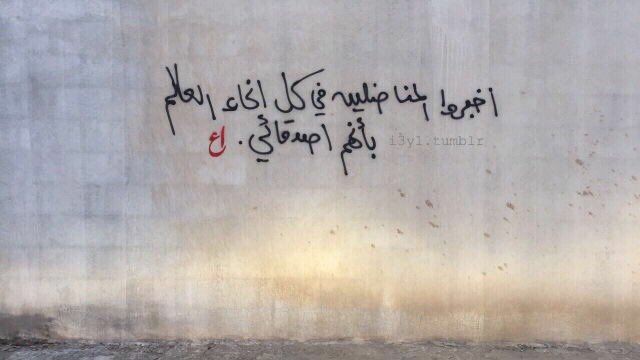 أخبروا المناضلين في كل انحاء العالم
بأنهم اصدقائي . اع
i3yl.tumblr